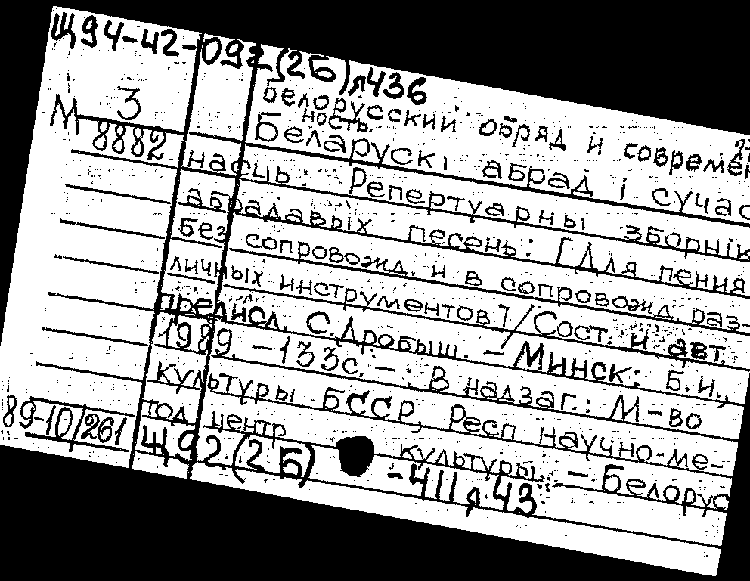 Щ94-42-092(2Б)я436
Белорусский обряд и современ
ность.
М 3
8882
Беларускі абрад і сучас
насць: Репертуарны зборнік
абрадавых песень: [Для пения
без сопровожд. и в сопровожд. раз-
личных инструментов]/Сост. и авт.
предисл. С.Дробыш. – Минск: Б.и.,
1989. – 133с. – В надзаг.: М-во
культуры БССР, Респ научно-ме-
тод центр культуры. – Белорус
89-10/261
Щ92(2Б)-411я43